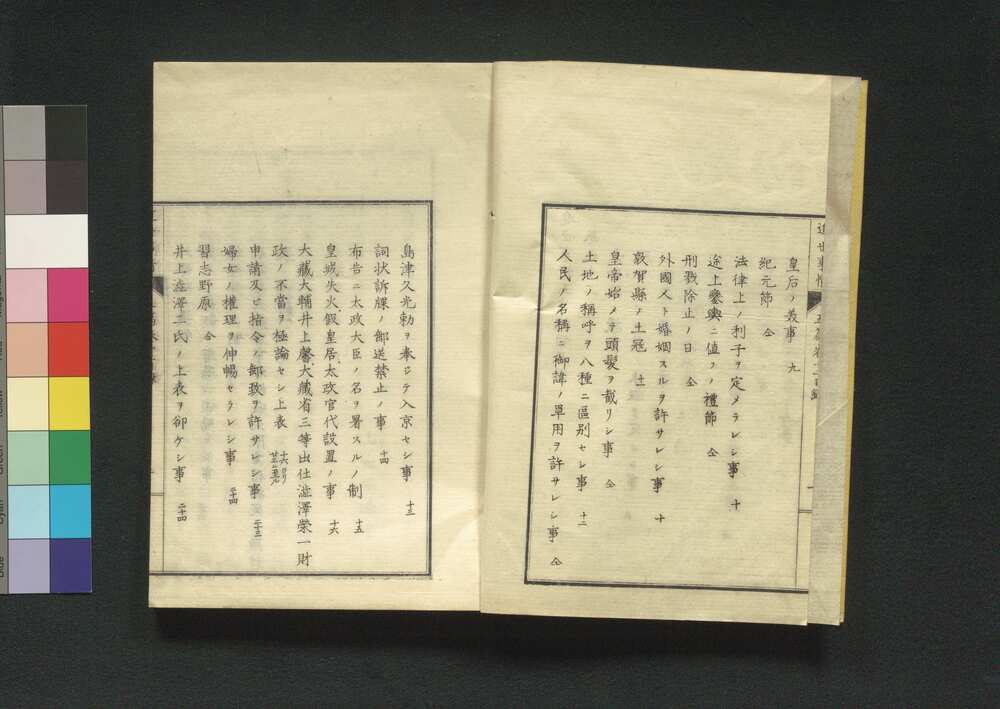 近世事情
皇后ノ美事 九
紀元節 仝
法律上ノ利子ヲ定メラレシ事 十
途上鑾輿ニ値フノ禮節 仝
刑戮除止ノ日 仝
外國人ト婚姻スルヲ許サレシ事 十
敦賀縣ノ土冦 十一
皇帝始メテ頭髪ヲ截リシ事 仝
土地ノ稱呼ヲ八種ニ區别セシ事 十二
人民ノ名稱ニ御諱ノ單用ヲ許サレシ事 仝
島津久光勅ヲ奉シテ入京セシ事 十三
詞状訴牒ノ郵送禁止ノ事 十四
布告ニ太政大臣ノ名ヲ署スルノ制 十五
皇城失火假皇居太政官代設置ノ事 十六
大藏大輔井上馨大藏省三等出仕澁澤榮一財
政ノ不當ヲ極論セシ上表 十六ヨリ
申請及ビ指令ノ郵致ヲ許サレシ事 二十三
婦女ノ權理ヲ伸暢セラレシ事 二十四
習志野原 仝
井上澁澤二氏ノ上表ヲ卻ケシ事 二十四